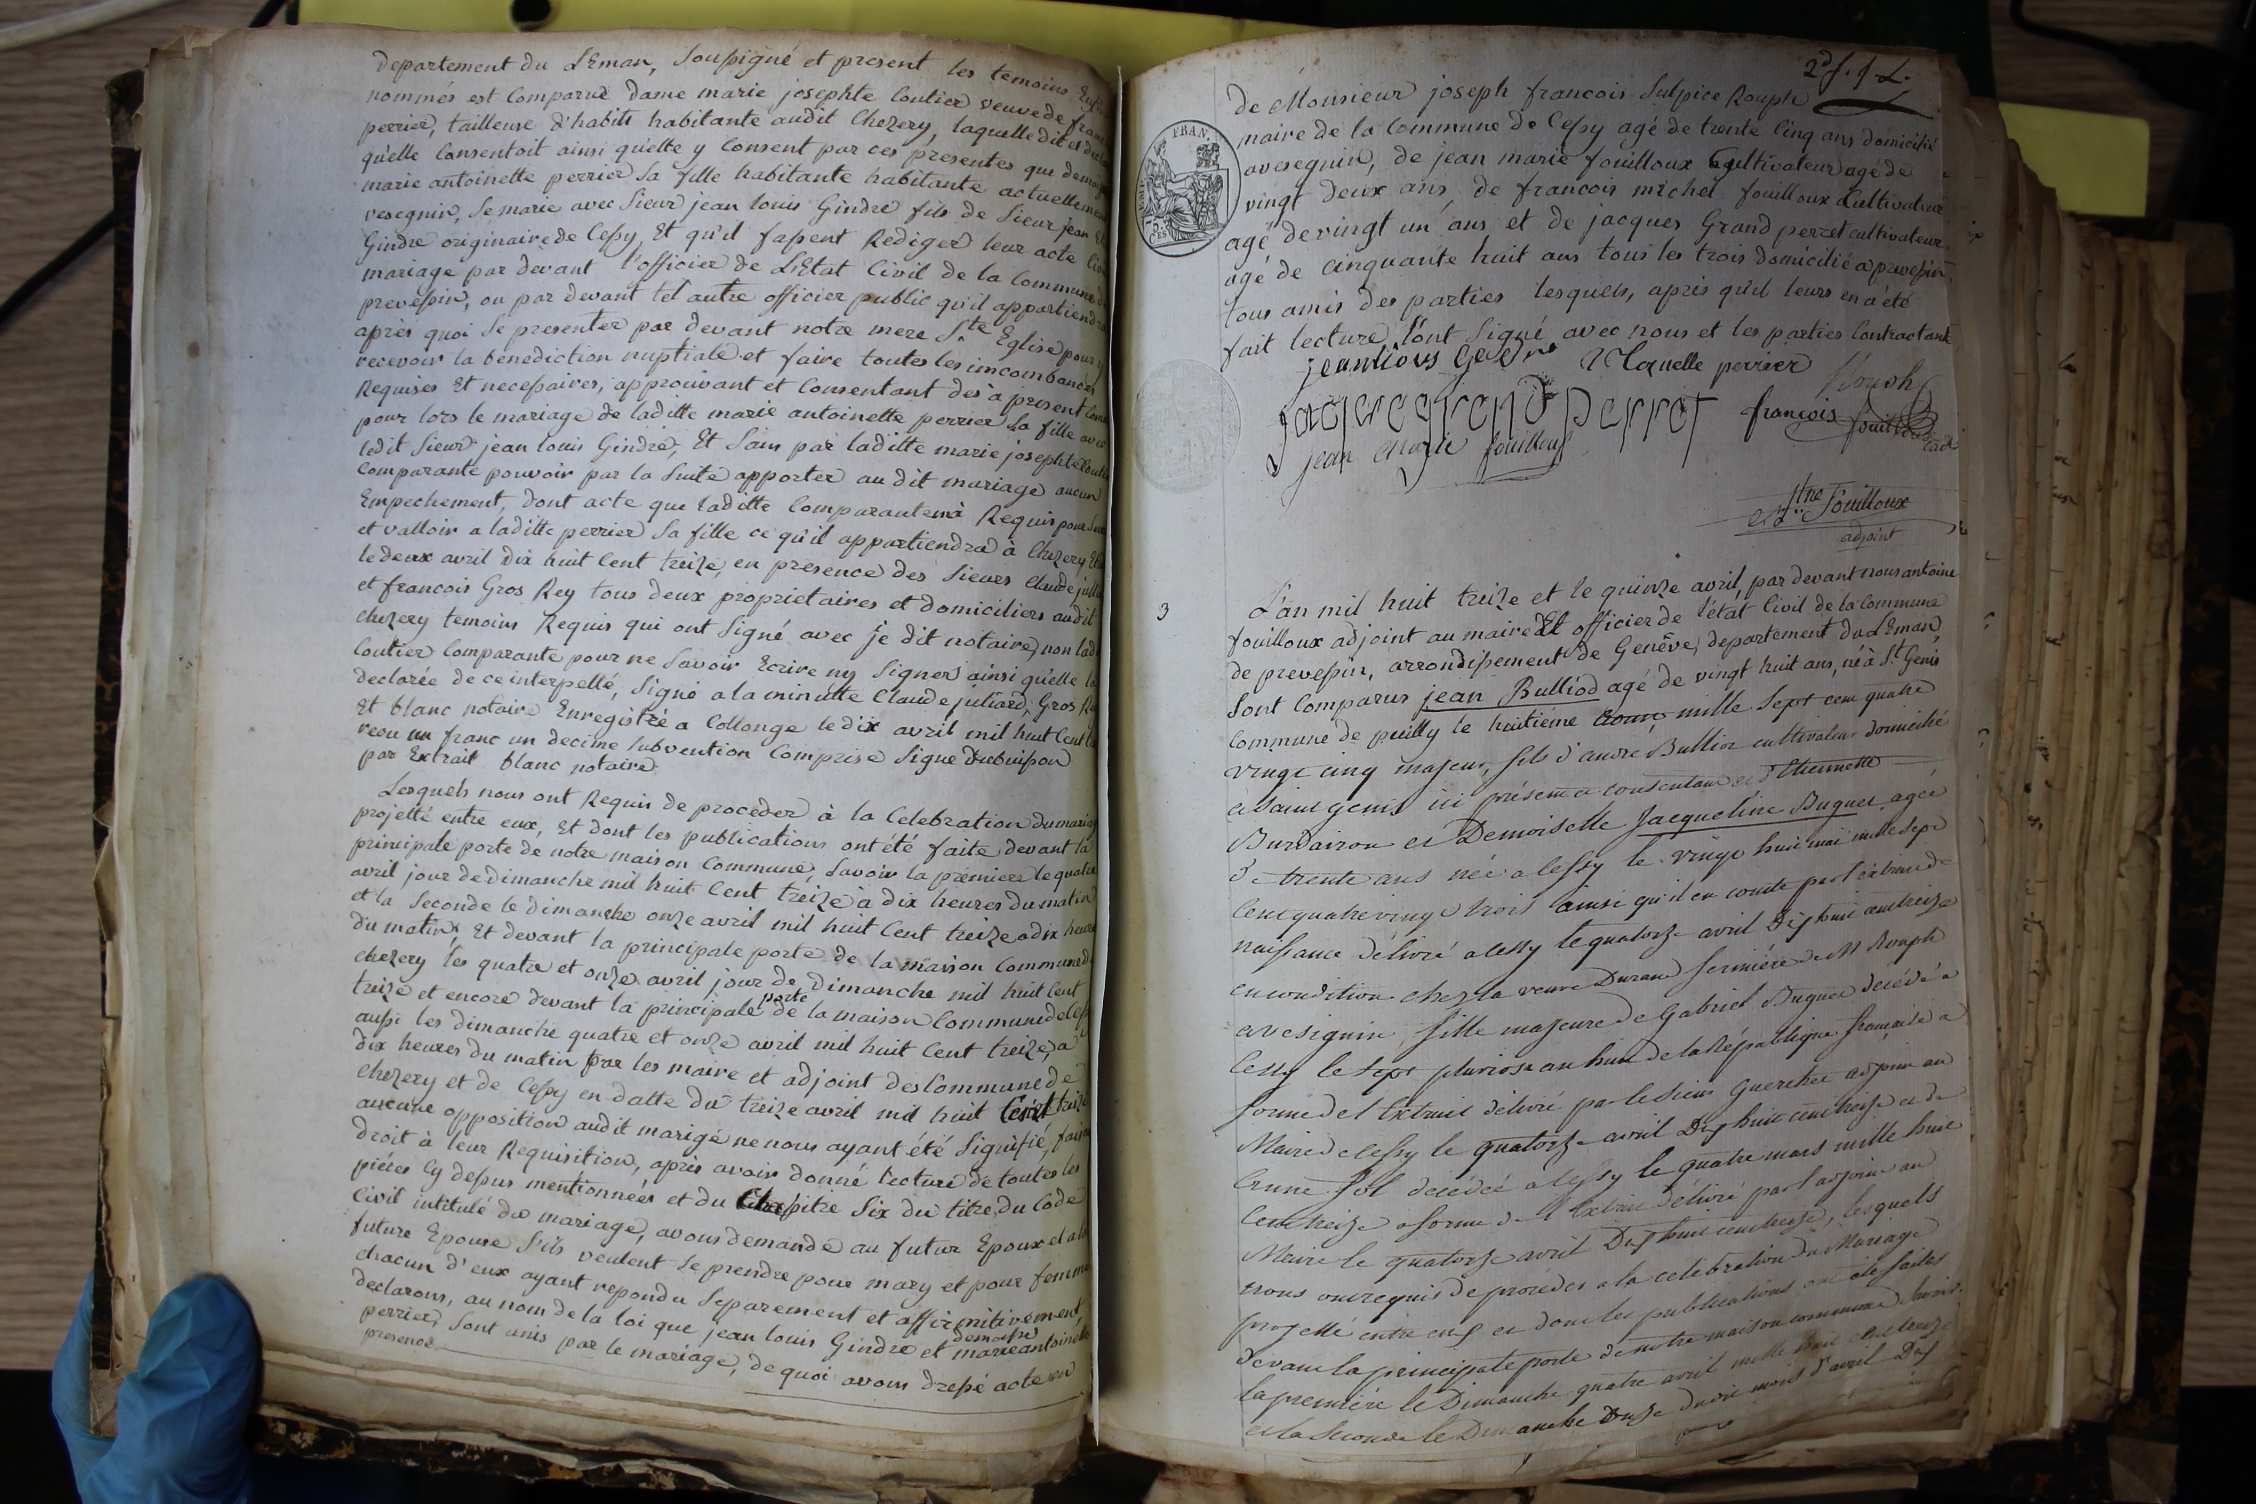 departement du LEman, Soussigné et present les temoins
nommés est Comparue dame marie josephte Coutier veuve de
perrier, tailleuse d'habits habitante audit Chezery, laquelle dit et
qu'elle Consentoit ainsi qu'elle y Consent par ces présentes que
marie antoinette perrier sa fille habitante habitante actuellement
vesegnin, Se marie avec Sieur jean louis Gindre fils de Sieur jean
Gindre originaire de Cessy Et qu'il fassent Rediger leur acte
mariage par devant l'officier de L'Etat Civil de la Commune
prevessin, ou par devant tel autre officier public qu'il appartiendra
après quoi Se presenter par devant notre mere Ste Eglise pour y
recevoir la benediction nuptiale et faire toutes les incombances
Requises Et necessaires, approuvant et Consentant des à present
pour lors le mariage de laditte marie antoinette perrier sa fille avec
ledit Sieur jean louis Gindre, Et Sans par laditte marie josephte
Comparante pouvoir par la Suite apporter au dit mariage aucun
Empechement, dont acte que laditte Comparante m'a Requis pour
et valloir a laditte perrier Sa fille ce qu'il appartiendra à Chezery
le deux avril dix huit Cent treize, en presence des Sieurs Claude
et francois Gros Rey tous deux proprietaires et domiciliers audit
chezery temoins Requis qui ont Signé avec je dit notaire, non
Coutier Comparante pour ne Savoir Ecrire ny Signer ainsi qu'elle
declarée de ce interpellé, Signé a la minutte Claude juliard, Gros
Et blanc notaire Enregistré a Collonge le dix avril mil huit Cent
reçu un franc un decime Subvention Comprise Signé Dubuisson
par Extrait blanc notaire
Lesquels nous ont Requis de proceder à la Celebration du
projetté entre eux, Et dont les publications ont été faite devant la
principale porte de notre maison Commune, Savoir la premiere le quatre
avril jour de dimanche mil huit Cent treize à dix heures du matin
et la Seconde le dimanche onze avril mil huit Cent treize a dix heures
du matin, Et devant la principale porte de la maison Commune
chezery les quatre et onze avril jour de Dimanche mil huit Cent
treize et encore devant la principale porte de la maison Commune
aussi les dimanche quatre et onze avril mil huit Cent treize, a
dix heures du matin par les maire et adjoint des Commune de
chezery et de Cessy en datte du treize avril mil huit Cent treize
aucune opposition audit marigé ne nous ayant été Signifié,
droit à leur Requisition, après avoir donné lecture de toutes les
piéces Cy dessus mentionnées et du Chapitre Six du titre du Code
Civil intitulé du mariage, avons demandé au futur Epoux et a la
future Epouse S'ils veulent Se prendre pour mary et pour femme
chacun d'eux ayant repondu Separement et affirmitivement
declarons, au nom de la loi que jean louis Gindre et demoiselle marie antoinette
perrier, Sont unis par le mariage, de quoi avons dressé acte en
presence
de Monsieur joseph francois Sulpice Rouph
maire de la Commune de Cessy agé de trente Cinq ans domicilié
avesegnin, de jean marie fouilloux Cultivateur agé de
vingt deux ans, de francois michel fouilloux Cultivateur
agé de vingt un ans et de jacques Grand perret cultivateur
agé de cinquante huit ans tous les trois domicilié a prevessin,
tous amis des parties lesquels, après qu'il leurs en a été
fait lecture l'ont Signé avec nous et les parties Contractante
perrier
Rouph
jacque grand perret
françois fouilloux
jean marie fouilloux
Fouilloux
adjoint
3
L'an mil huit treize et le quinze avril, par devant nous antoine
fouilloux adjoint au maire Et officier de l'état Civil de la Commune
de prevessin, arrondissement de Genêve, departement du LEman,
Sont Comparus jean Bulliod agé de vingt huit ans, né à St Genis
Commune de pouilly le huitième mille Sept cent quatre
vingt cinq majeur, fils d'andré Bulliod cultivateur domicilié
a Saint genis ici présent et consentant et d'Etiennette
Burdairon et Demoiselle Jacqueline Buguet agée
de trente ans née a Cessy le vingt huit mai mille Sept
Cent quatre vingt trois ainsi qu'il en conste par l'extrait de
naissance délivré a Cessy le quatorze avril Dix huit cent treize
en condition chez la veuve Durand fermière de Mr Rouph
avesegnin, fille majeure de Gabriel Buguet décédé a
Cessy le Sept pluviose an huit de la République française a
forme de l'Extrait délivré par le Sieur adjoint au
Maire de Cessy le quatorze avril Dix huit cent treize et de
décédée a Cessy le quatre mars mille huit
Cent treize a forme de l'Extrait délivré par l'adjoint au
Maire le quatorze avril Dix huit cent treize, lesquels
nous ont requis de procéder a la célébration du Mariage
projetté entre eux et dont les publications ont été faites
devant la principale porte de notre maison commune Savoir
la première le Dimanche quatre avril mille huit Cent treize
et la Seconde le Dimanche onze Dudit mois d'avril Dix